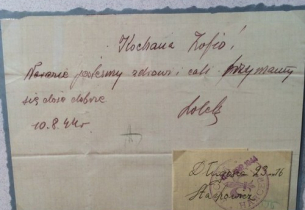 Kochana Zofio!
Narazie jesteśmy zdrowi i cali trzymamy
się dość dobrze
Lolek
10.8.44r
Długa 23